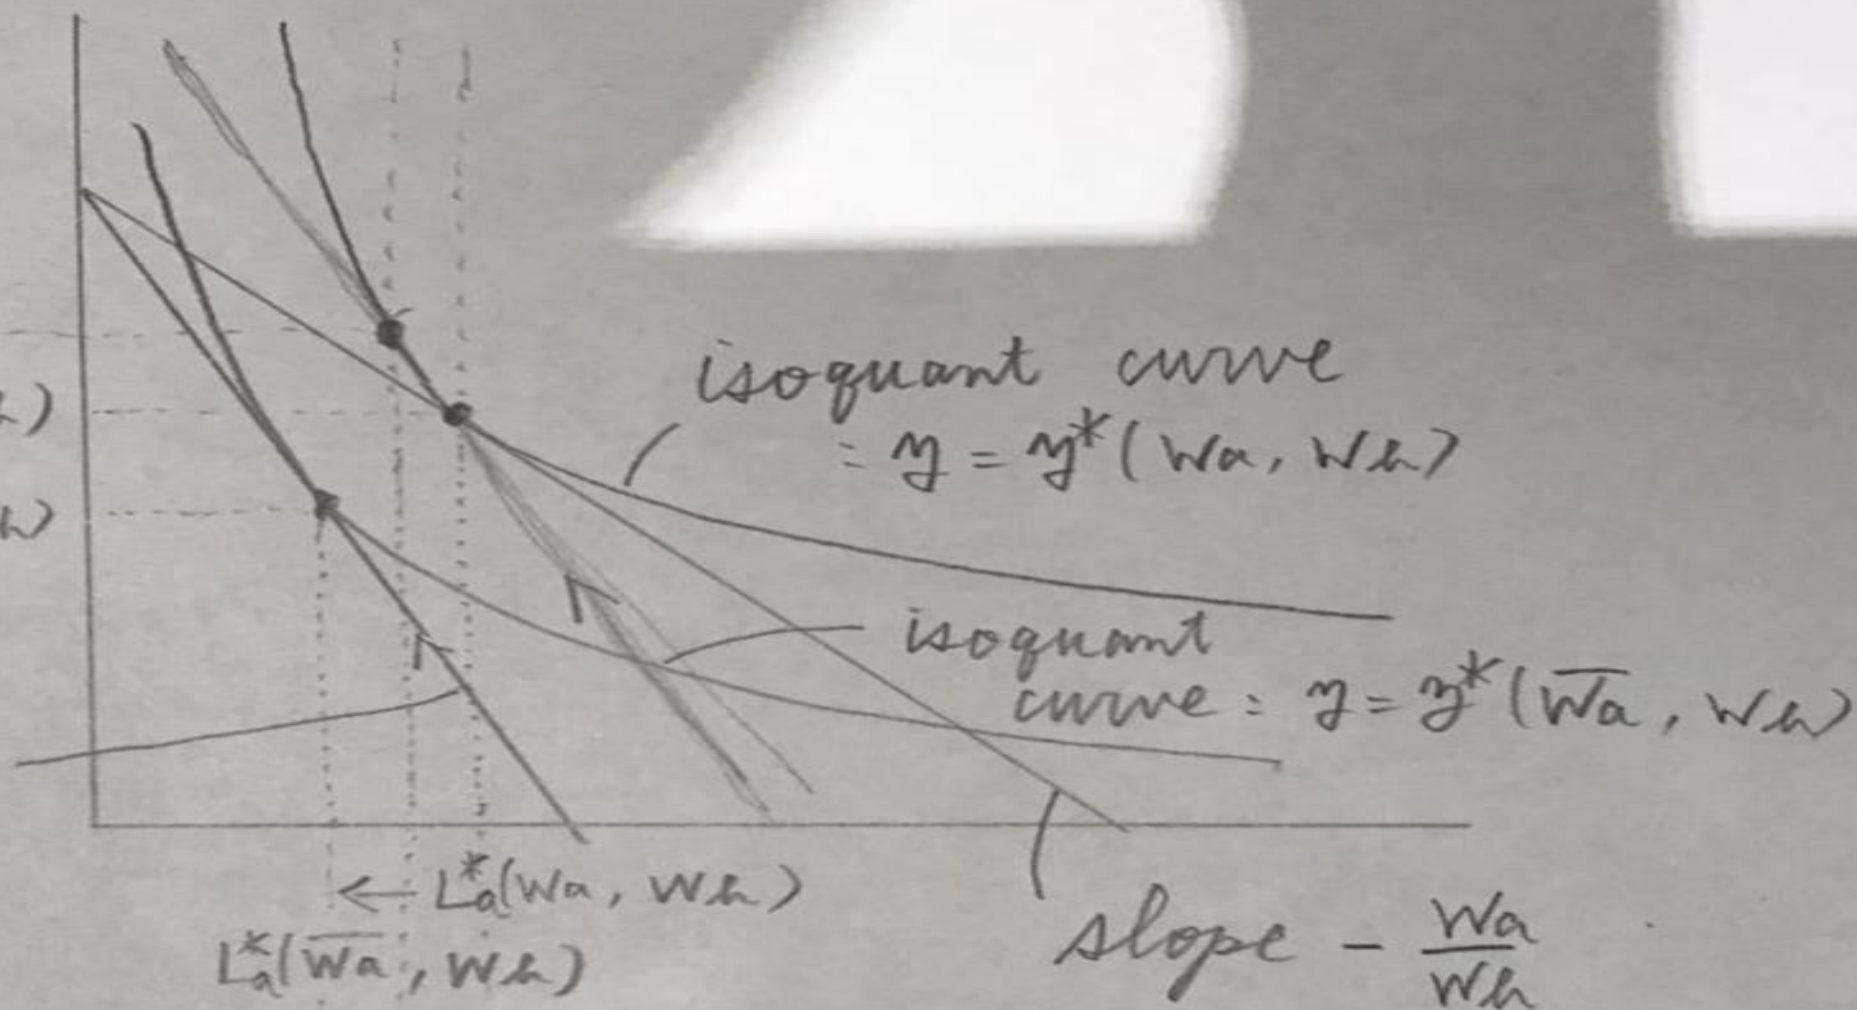 isoquant curve
: y = y*(Wa, Wh)
h)
h)
isoquant
curve : y = y*(W̅a̅, Wh)
← L*a(Wa, Wh)
L*a(W̅a̅, Wh)
slope - Wa
Wh